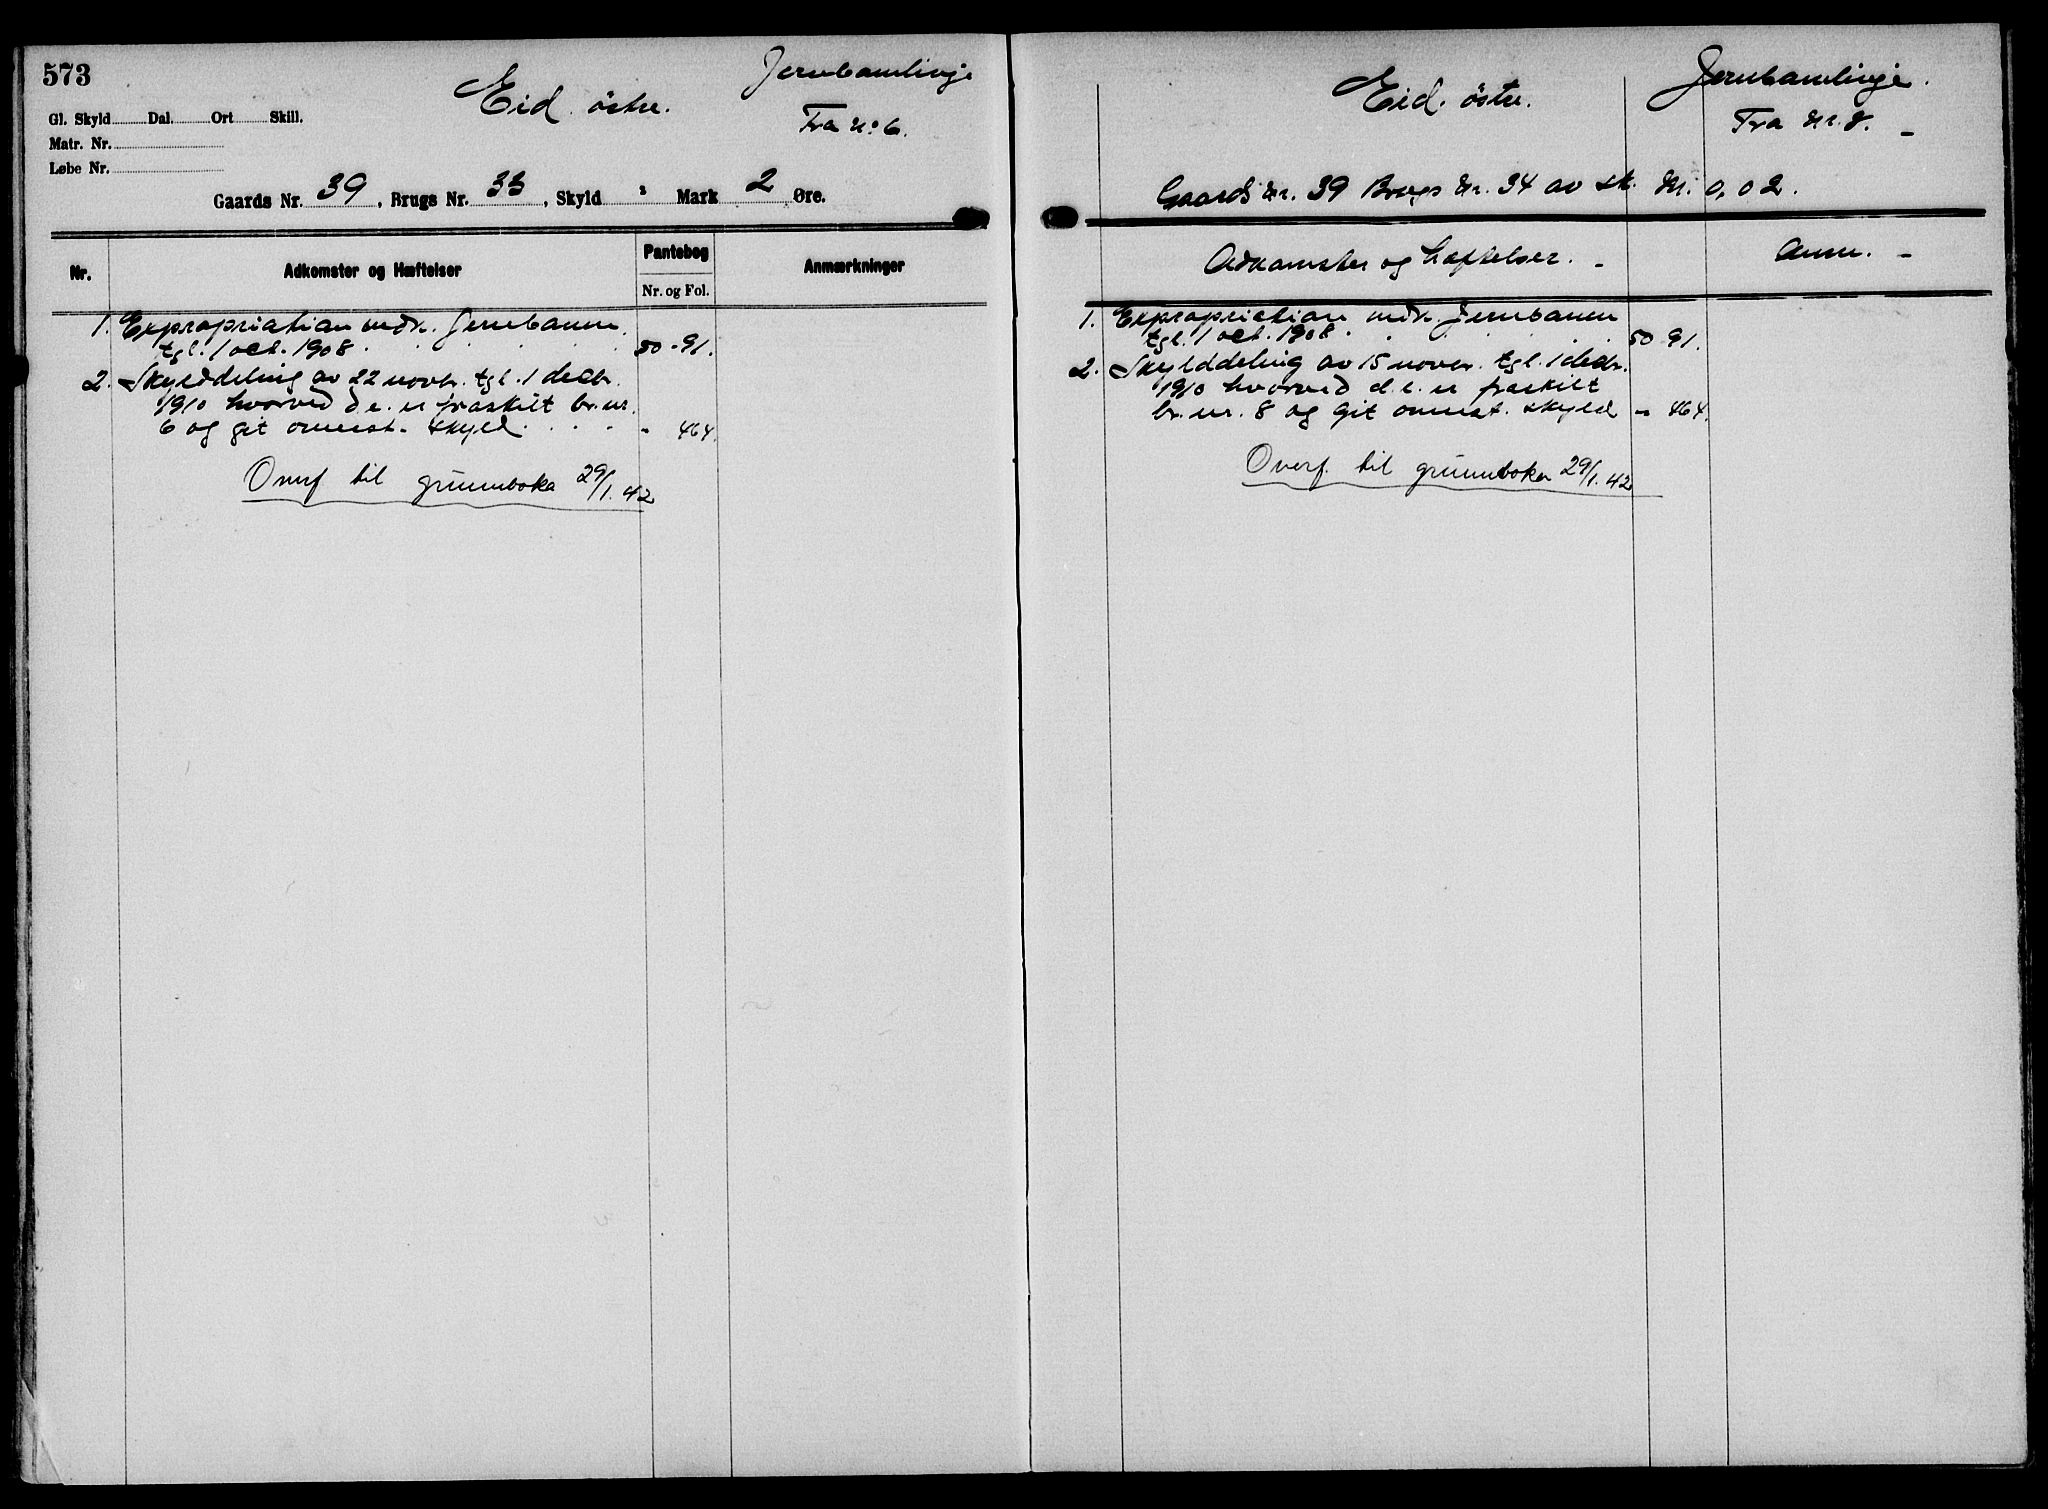 573
Eid østre.
Jernbanelinje
Fra No 6.
Gl. Skyld Dal. Ort Skill.
Matr. Nr.
Løbe Nr.
Gaards Nr. 39, Brugs Nr. 33, Skyld " Mark 2 Øre.
Nr. Adkomster og Hæftelser Pantebog Anmærkninger
Nr. og Fol.
1. Expropriation vedr. Jernbanen
tgl. 1 oct. 1908 . . . . 50 - 91.
2. Skylddeling av 22 novbr. tgl. 1 decbr.
1910 hvorved d. e. er fraskilt br. nr.
6 og git ovenst. skyld . . . . - 464.
Overf til grunnboka 29/1. 42
Eid østre.
Jernbanelinje.
Fra Nr. 8. -
Gaards Nr. 39 Brugs Nr. 34 av sk. M. 0,02.
Adkomster og Heftelser. - Anm. -
1. Expropriation vedr. Jernbanen
tgl. 1 oct. 1908 . . . . . 50 91.
2. Skylddeling av 15 novbr. tgl. 1 decbr.
1910 hvorved d. e. er fraskilt
br. nr. 8 og git ovenst. skyld - 464.
Overf. til grunnboka 29/1. 42